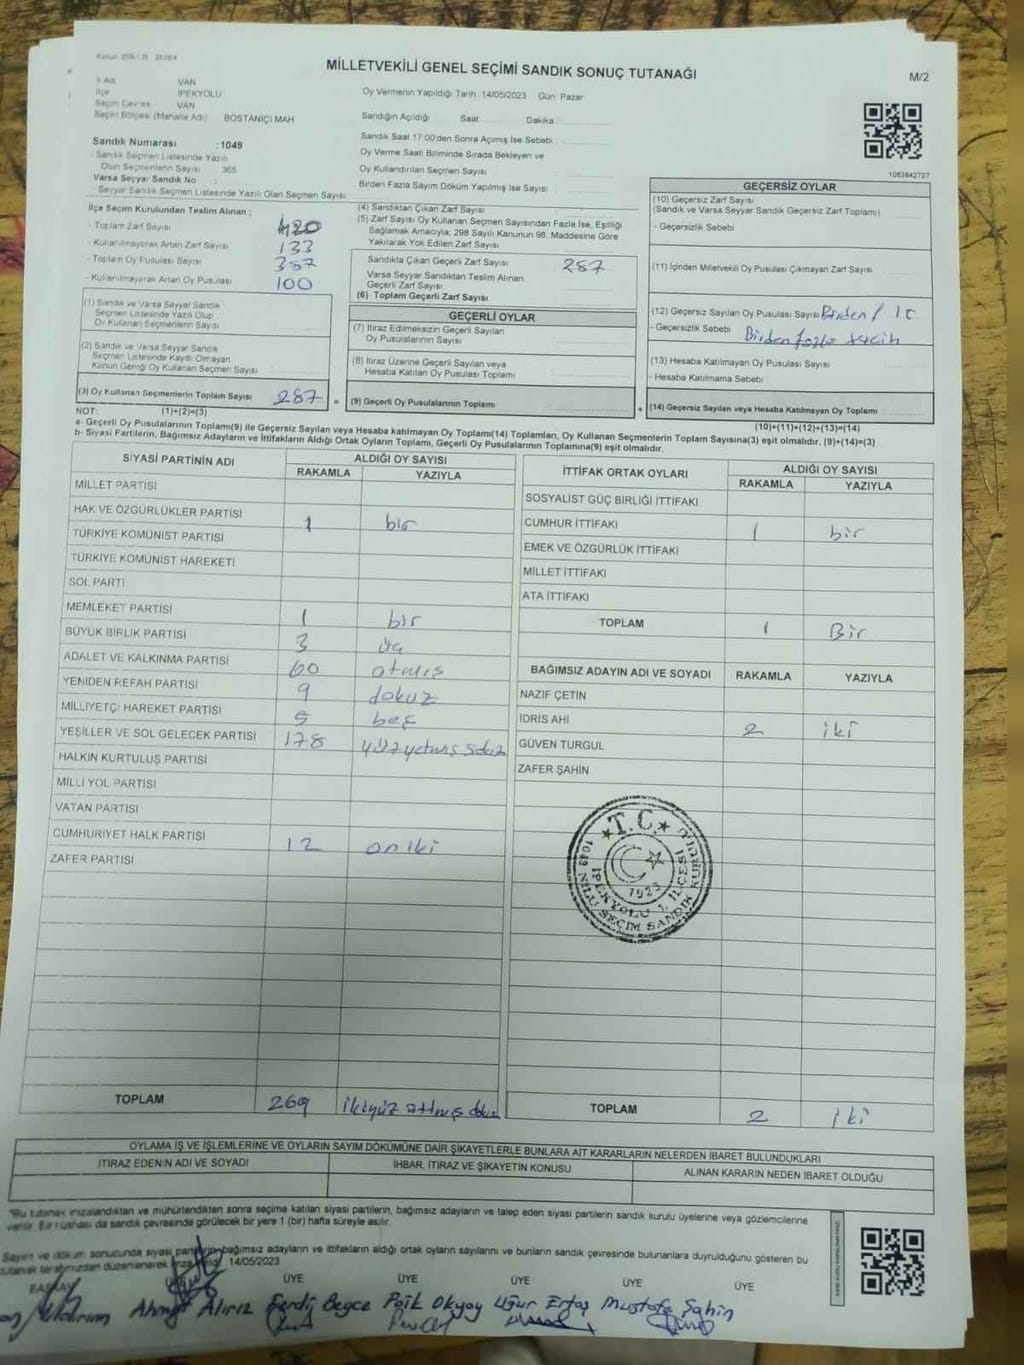 MİLLETVEKİLİ GENEL SEÇİMİ SANDIK SONUÇ TUTANAĞI
M/2
İl Adı VAN
İlçe İPEKYOLU
Seçim Çevresi VAN
Seçim Bölgesi (Mahalle Adı) BOSTANİÇİ MAH
Oy Vermenin Yapıldığı Tarih :14/05/2023 Gün: Pazar
Sandığın Açıldığı Saat Dakika
Sandık Saat 17.00'den Sonra Açımış İse Sebebi :
Oy Verme Saati Bitiminde Sırada Bekleyen ve
Oy Kullandırılan Seçmen Sayısı :
Birden Fazla Sayım Döküm Yapılmış İse Sayısı :
Sandık Numarası :1049
Sandık Seçmen Listesinde Yazılı
Olan Seçmenlerin Sayısı 365
Varsa Seyyar Sandık No :
Seyyar Sandık Seçmen Listesinde Yazılı Olan Seçmen Sayısı:
1083842727
İlçe Seçim Kurulundan Teslim Alınan ;
- Toplam Zarf Sayısı 420
- Kullanılmayarak Artan Zarf Sayısı 133
- Toplam Oy Pusulası Sayısı 387
- Kullanılmayarak Artan Oy Pusulası 100
(1) Sandık ve Varsa Seyyar Sandık
Seçmen Listesinde Yazılı Olup
Oy Kullanan Seçmenlerin Sayısı
(2) Sandık ve Varsa Seyyar Sandık
Seçmen Listesinde Kayıtlı Olmayan
Kanun Gereği Oy Kullanan Seçmen Sayısı
(3) Oy Kullanan Seçmenlerin Toplam Sayısı 287 =
(4) Sandıktan Çıkan Zarf Sayısı
(5) Zarf Sayısı Oy Kullanan Seçmen Sayısından Fazla İse, Eşitliği
Sağlamak Amacıyla, 298 Sayılı Kanunun 98. Maddesine Göre
Yakılarak Yok Edilen Zarf Sayısı
Sandıkta Çıkan Geçerli Zarf Sayısı 287
Varsa Seyyar Sandıktan Teslim Alınan
Geçerli Zarf Sayısı
(6) Toplam Geçerli Zarf Sayısı
GEÇERLİ OYLAR
(7) İtiraz Edilmeksizin Geçerli Sayılan
Oy Pusulasının Sayısı
(8) İtiraz Üzerine Geçerli Sayılan ve
Hesaba Katılan Oy Pusulası Toplamı
(9) Geçerli Oy Pusulalarının Toplamı +
GEÇERSİZ OYLAR
(10) Geçersiz Zarf Sayısı
(Sandık ve Varsa Seyyar Sandık Geçersiz Zarf Toplamı)
- Geçersizlik Sebebi
(11) İçinden Milletvekili Oy Pusulası Çıkmayan Zarf Sayısı
(12) Geçersiz Sayılan Oy Pusulası Sayısı Birden /
- Geçersizlik Sebebi Birden fazla tercih
(13) Hesaba Katılmayan Oy Pusulası Sayısı
- Hesaba Katılmama Sebebi
(14) Geçersiz Sayılan veya Hesaba Katılmayan Oy Toplamı
NOT: (1)+(2)=(3)
(10)+(11)+(12)+(13)=(14)
a- Geçerli Oy Pusulalarının Toplamı(9) ile Geçersiz Sayılan veya Hesaba katılmayan Oy Toplamı(14) Toplamları, Oy Kullanan Seçmenlerin Toplam Sayısına(3) eşit olmalıdır. (9)+(14)=(3)
b- Siyasi Partilerin, Bağımsız Adayların ve İttifakların Aldığı Ortak Oyların Toplamı, Geçerli Oy Pusulalarının Toplamına(9) eşit olmalıdır.
SİYASİ PARTİNİN ADI ALDIĞI OY SAYISI
RAKAMLA YAZIYLA
MİLLET PARTİSİ
HAK VE ÖZGÜRLÜKLER PARTİSİ 1 bir
TÜRKİYE KOMÜNİST PARTİSİ
TÜRKİYE KOMÜNİST HAREKETİ
SOL PARTİ
MEMLEKET PARTİSİ 1 bir
BÜYÜK BİRLİK PARTİSİ 3 üç
ADALET VE KALKINMA PARTİSİ 60 atmış
YENİDEN REFAH PARTİSİ 9 dokuz
MİLLİYETÇİ HAREKET PARTİSİ 5 beş
YEŞİLLER VE SOL GELECEK PARTİSİ 178 yüzyetmiş sekiz
HALKIN KURTULUŞ PARTİSİ
MİLLİ YOL PARTİSİ
VATAN PARTİSİ
CUMHURİYET HALK PARTİSİ 12 on iki
ZAFER PARTİSİ
TOPLAM 269 ikiyüz atmış dokuz
İTTİFAK ORTAK OYLARI ALDIĞI OY SAYISI
RAKAMLA YAZIYLA
SOSYALİST GÜÇ BİRLİĞİ İTTİFAKI
CUMHUR İTTİFAKI 1 bir
EMEK VE ÖZGÜRLÜK İTTİFAKI
MİLLET İTTİFAKI
ATA İTTİFAKI
TOPLAM 1 Bir
BAĞIMSIZ ADAYIN ADI VE SOYADI RAKAMLA YAZIYLA
NAZİF ÇETİN
İDRİS AHİ 2 iki
GÜVEN TURGUL
ZAFER ŞAHİN
T.C.
1923
İPEKYOLU 1. İLÇESİ
1049 NOLU SEÇİM SANDIK KURULU
TOPLAM 2 iki
OYLAMA İŞ VE İŞLEMLERİNE VE OYLARIN SAYIM DÖKÜMÜNE DAİR ŞİKAYETLERLE BUNLARA AİT KARARLARIN NELERDEN İBARET BULUNDUKLARI
İTİRAZ EDENİN ADI VE SOYADI İHBAR, İTİRAZ VE ŞİKAYETİN KONUSU ALINAN KARARIN NEDEN İBARET OLDUĞU
"Bu tutanak imzalandıktan ve mühürlendikten sonra seçime katılan siyasi partilerin, bağımsız adayların ve talep eden siyasi partilerin sandık kurulu üyelerine veya gözlemcilerine
verilir. Bir nüshası da sandık çevresinde görülecek bir yere 1 (bir) hafta süreyle asılır.
Sayım ve döküm sonucunda siyasi partilerin, bağımsız adayların ve ittifakların aldığı ortak oyların sayılarını ve bunların sandık çevresinde bulunanlara duyrulduğunu gösteren bu
tutanak tarafımızdan düzenlenerek 14/05/2023
BAŞKAN ÜYE ÜYE ÜYE ÜYE ÜYE
Yıldırım Ahmet Alırız Ferdi Begce Okyay Uğur Ertaş Mustafa Şahin